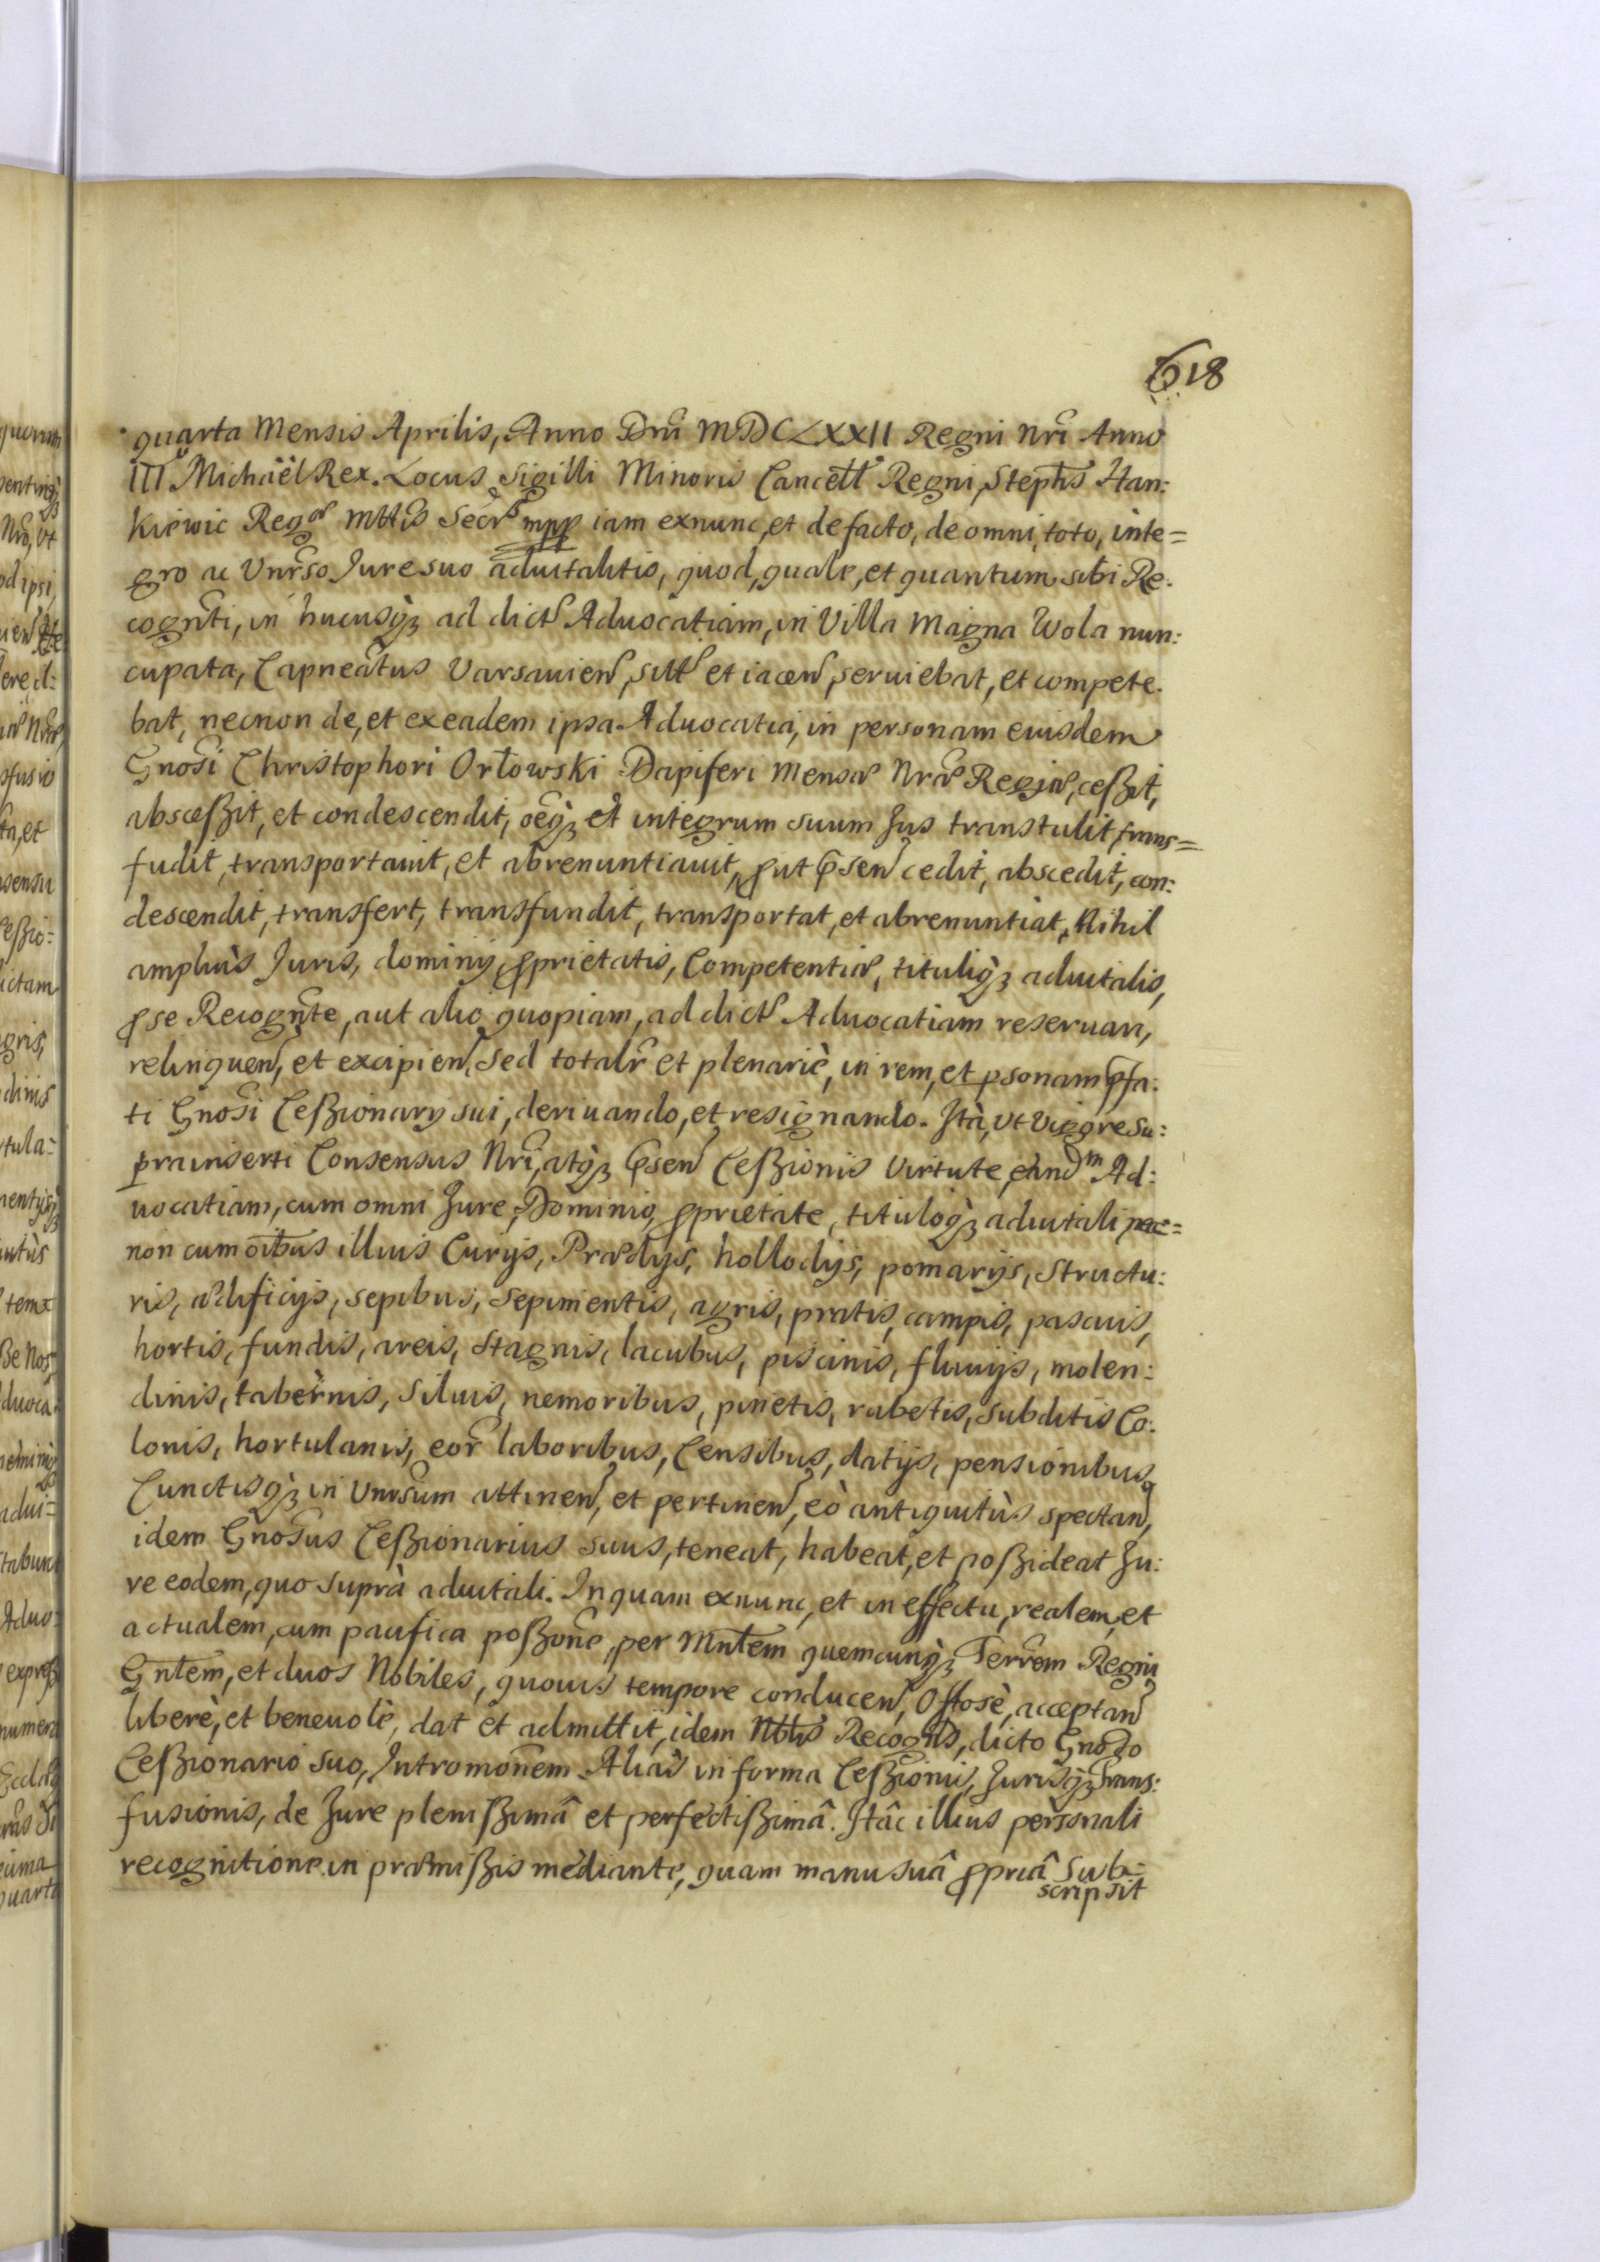 618
quarta Mensis Aprilis, Anno Dni MDCLXXII Regni Nri Anno
IIIº Michaël Rex. Locus Sigilli Minoris Cancell Regni, Stephs Han:
kiewic Regæ Mttis Secrs mpp iam exnunc, et de facto, de omni, toto, inte=
gro ac Unrso Jure suo aduitalitio, quod, quale, et quantum sibi Re.
cognti, in hucusqȝ ad dict Aduocatiam, in Villa Magna Wola nun:
cupata, Capneatus Varsauien, sitt et iacen, seruiebat, et compete.
bat, necnon de, et ex eadem ipsa Aduocatia, in personam eiusdem
Gnosi Christophori Orłowski Dapiferi Mensæ Nræ Regiæ, ceßit,
absceßit, et condescendit, oeqȝ et integrum suum Jus transtulit, trans=
fudit, transportauit, et abrenuntiauit, put psen cedit, abscedit, con:
descendit, transfert, transfundit, transportat, et abrenuntiat, Nihil
ampliùs Juris, dominij, pprietatis, Competentiæ, tituliqȝ aduitalis,
p se Recognte, aut alio quopiam, ad dict Aduocatiam reseruan,
relinquen, et excipien, Sed totalr et plenariè, in rem, et psonam pfa:
ti Gnosi Ceßionarij sui, deriuando, et resignando. Ità, ut vigore su:
prainserti Consensus Nri, atqȝ psen Ceßionis Virtute, eandm Ad:
uocatiam, cum omni Jure, Dominio, pprietate, tituloqȝ aduitali nec=
non cum oibus illius Curijs, Prædijs, hollodijs, pomarijs, structu:
ris, ædificijs, sepibus, sepimentis, agris, pratis, campis, pascuis,
hortis, fundis, areis, stagnis, lacubus, piscinis, fluuijs, molen:
dinis, tabernis, siluis, nemoribus, pinetis, rubetis, subditis Co:
lonis, hortulanis, eor laboribus, Censibus, datijs, pensionibus
Cunctisqȝ in Unrsum attinen, et pertinen, eò antiquitùs spectan,
idem Gnosus Ceßionarius suus, teneat, habeat, et poßideat Ju:
re eodem, quo suprà aduitali. In quam exnunc, et in effectu, realem, et
actualem, cum pacifica poßone, per Mntem quemcunqȝ Terrem Regni
Gntem, et duos Nobiles, quouis tempore conducen, Offosè, acceptan
liberè, et beneuolè, dat et admittit, idem Nbtis Recogns, dicto Gnoso
Ceßionario suo, Intromonem. Aliàs in forma Ceßionis, Jurisqȝ Trans:
fusionis, de Jure plenißimâ et perfectißimâ. Itâc illius personali
recognitione in præmißis mediante, quam manu suâ ppriâ Sub:
scripsit